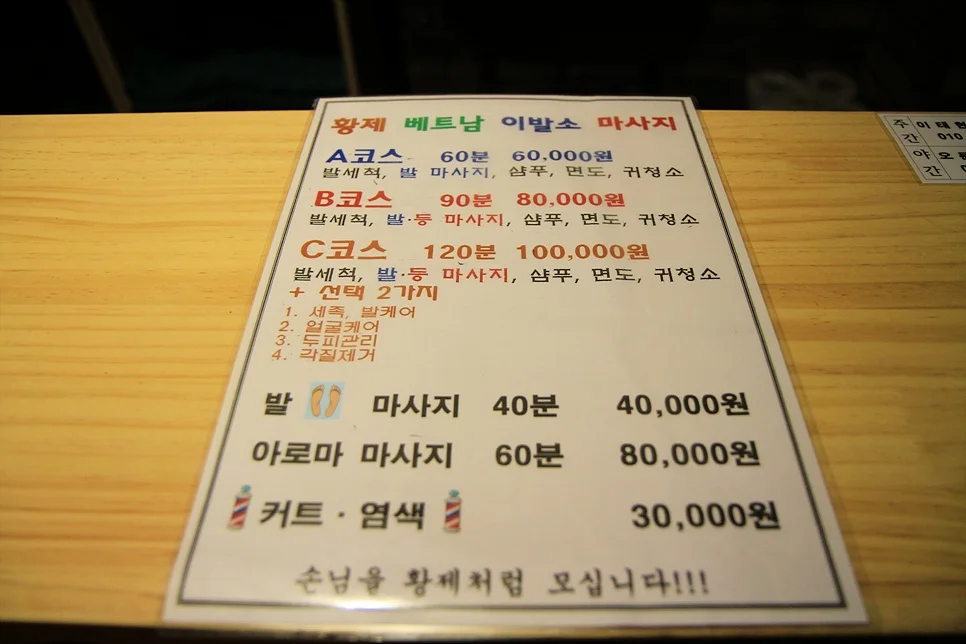 황제 베트남 이발소 마사지
A코스 60분 60,000원
발세척, 발 마사지, 샴푸, 면도, 귀청소
B코스 90분 80,000원
발세척, 발·등 마사지, 샴푸, 면도, 귀청소
C코스 120분 100,000원
발세척, 발·등 마사지, 샴푸, 면도, 귀청소
+ 선택 2가지
1. 세족, 발케어
2. 얼굴케어
3. 두피관리
4. 각질제거
발 마사지 40분 40,000원
아로마 마사지 60분 80,000원
커트·염색 30,000원
손님을 황제처럼 모십니다!!!
주간 이태
010
야간